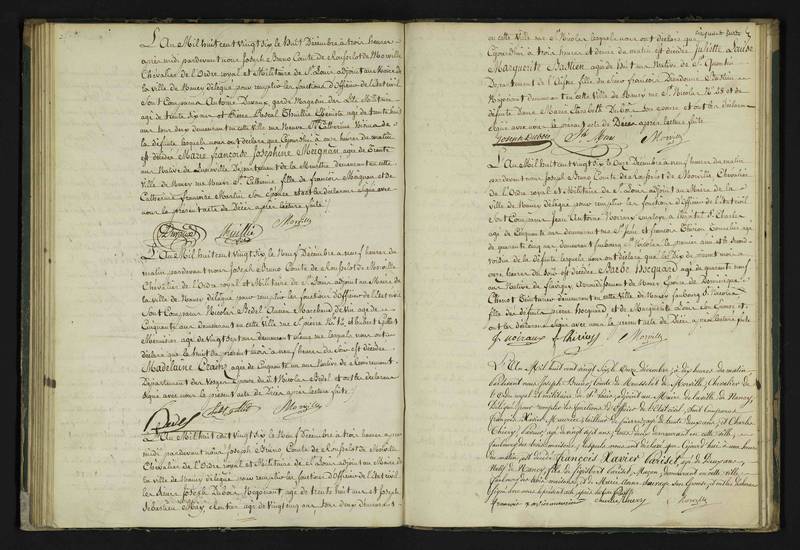 L'an Mil huit cent vingt six le huit Décembre à trois heures
après midi pardevant nous Joseph Bruno Comte de Rousselot de Morville
Chevalier de l'Ordre royal et Militaire de St Louis adjoint au Maire de
la ville de Nancy délégué pour remplir les fonctions d'Officier de l'état civil
Sont Comparus Antoine Duvaux, garde Magasin des Lits Militaires
agé de trente six ans et Pierre Pascal Thuillie Ebéniste agé de trente huit
ans tous deux demeurant en cette ville rue Neuve Ste Catherine
la défunte lesquels nous ont déclaré que Cejourd'hui à onze heures du matin
est décédée Marie françoise Joséphine Meignan agée de Trente
ans Native de Lunéville Département de la Meurthe demeurant en cette
Ville de Nancy rue Neuve Ste Catherine fille de françois Meignan et de
Catherine françoise son Epouse et ont les déclarans Signé avec
nous le présent acte de Décès après lecture faite
Duvaux Thuillié Morville
L'An Mil huit cent vingt six le Neuf Décembre à neuf heures du
matin pardevant nous Joseph Bruno Comte de Rousselot de Morville
Chevalier de l'Ordre royal et Militaire de St Louis adjoint au Maire de
la ville de Nancy délégué pour remplir les fonctions d'Officier de l'état civil
Sont Comparus Nicolas Bedel Ancien Marchand de Vin agé de
Cinquante ans demeurant en cette ville rue St pierre No 14 et hubert
Menuisier agé de Vingt Sept ans demeurant même rue lesquels nous ont
déclaré que le huit du présent mois à neuf heures du Soir est décédée
Madelaine agée de Cinquante un ans Native de Remiremont
Département des Vosges Epouse du dit Nicolas Bedel et ont les déclarans
signé avec nous le présent acte de Décès après lecture faite
Bedel Morville
L'An Mil huit cent Vingt Six le Neuf Décembre à trois heures après
midi pardevant nous Joseph Bruno Comte de Rousselot de Morville
Chevalier de l'Ordre royal et Militaire de St Louis adjoint au Maire de
la ville de Nancy délégué pour remplir les fonctions d'Officier de l'état civil
les Sieurs Joseph Dubois Négociant agé de trente huit ans et Joseph
Sebastien May, agé de vingt cinq ans tous deux demeurant
en cette Ville rue St Nicolas lesquels nous ont déclaré que
Cejourd'hui à trois heures et demie du matin est décédée Juliette Louise
Marguerite Bastien agée de huit ans Native de St Quentin
Département de l'Aisne fille du Sieur françois Dieudonné Bastien
Négociant demeurant en cette Ville de Nancy rue St Nicolas No 28 et de
défunte Dame Marie Elisabeth Dubois son épouse et ont les déclarans
Signé avec nous le présent acte de Décès après lecture faite
Joseph Dubois Sb May Morville
L'An Mil huit cent vingt six le Onze Décembre à neuf heures du matin
pardevant nous Joseph Bruno Comte de Rousselot de Morville Chevalier
de l'Ordre royal et Militaire de St Louis adjoint au Maire de la
Ville de Nancy délégué pour remplir les fonctions d'Officier de l'état civil
Sont Comparus Jean Antoine Noiraux employé à l'hôpital St Charles
agé de Cinquante ans demeurant rue St Jean et françois Thiriet agé
de quarante cinq ans, demeurant faubourg St Nicolas le premier ami et le Second
voisin de la défunte lesquels nous ont déclaré que le Dix du présent mois à
onze heures du Soir est décédée Barbe Hocquard agée de quarante neuf
ans Native de flavigny, Arrondissement de Nancy Epouse de Dominique
demeurant en cette Ville de Nancy faubourg St Nicolas
fille des défunts pierre Hocquard et de Marguerite son Epouse et
ont les déclarans Signé avec nous le présent acte de Décès après lecture faite
J. noiraux f Thiriet Morville
L'An Mil huit cent vingt six le Onze décembre à dix heures du matin
pardevant nous Joseph Bruno Comte de Rousselot de Morville, Chevalier de
l'Ordre royal et militaire de St Louis, adjoint au Maire de la ville de Nancy,
délégué pour remplir les fonctions d'officier de l'état civil, Sont Comparus
françois Xavier tailleur de pierres agé de trente deux ans, et Charles
Thiery agé de vingt sept ans tous deux demeurant en cette ville,
faubourg des trois maisons, lesquels nous ont déclaré que Cejourd'hui à une heure
du matin est décédé françois Xavier Lariset, agé de Deux ans
Natif de Nancy, fils de Lariset, Maçon, demeurant en cette ville
faubourg des trois maisons, et de Marie Anne Sauvage Son Epouse, et ont les déclarans
Signé avec nous le présent acte après lecture faite
françois xavier Charles thiery Morville